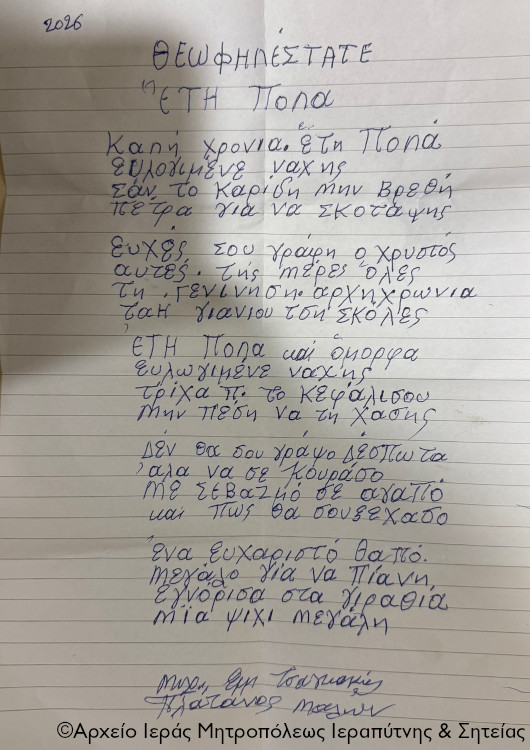 2026
ΘΕΩΦΗΛΈΣΤΑΤΕ
ΈΤΗ ΠΟΛΑ
Καλή χρονια. έτη Πολά
ευλογιμένε ναχης
Σάν το Καριδη μην βρεθή
πέτρα για να Σκοτάψης
Ευχές σου γράφη ο χρυστός
αυτές. τής μέρες όλες
τη. Γενινηση. αρχηχρωνια
ταη γιανιου τση Σκόλες
ΈΤΗ Πολα και όμορφα
ευλωγιμένε ναχης
τρίχα π. το Κεφάλισου
μην πέση να τη χάσης
Δέν θα σου γράψο Δέσπωτα
άλα να σε Κουράσο
ΜΕ Σεβαζμό σε αγαπό
και πως θα σουξεχάσο
Ένα ευχαριστό θαπό.
μεγάλο γιά να πίανη
Εγνόρισα στα γιραθιά
μία ψιχι μεγάλη
Πλατανος
©Αρχείο Ιεράς Μητροπόλεως Ιεραπύτνης & Σητείας